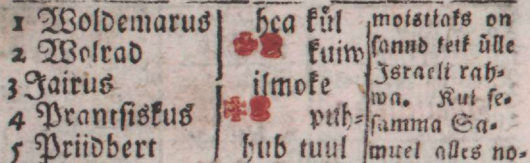 1 Woldemarus
2 Wolrad
3 Jairus
4 Prantsiskus
5 Priidbert
hea kül
kuiw
ilmoke
puh-
hub tuul
moistetaks on
sannd keik ülle
Israeli rah-
wa. Kui se-
samma Sa-
muel alles no-